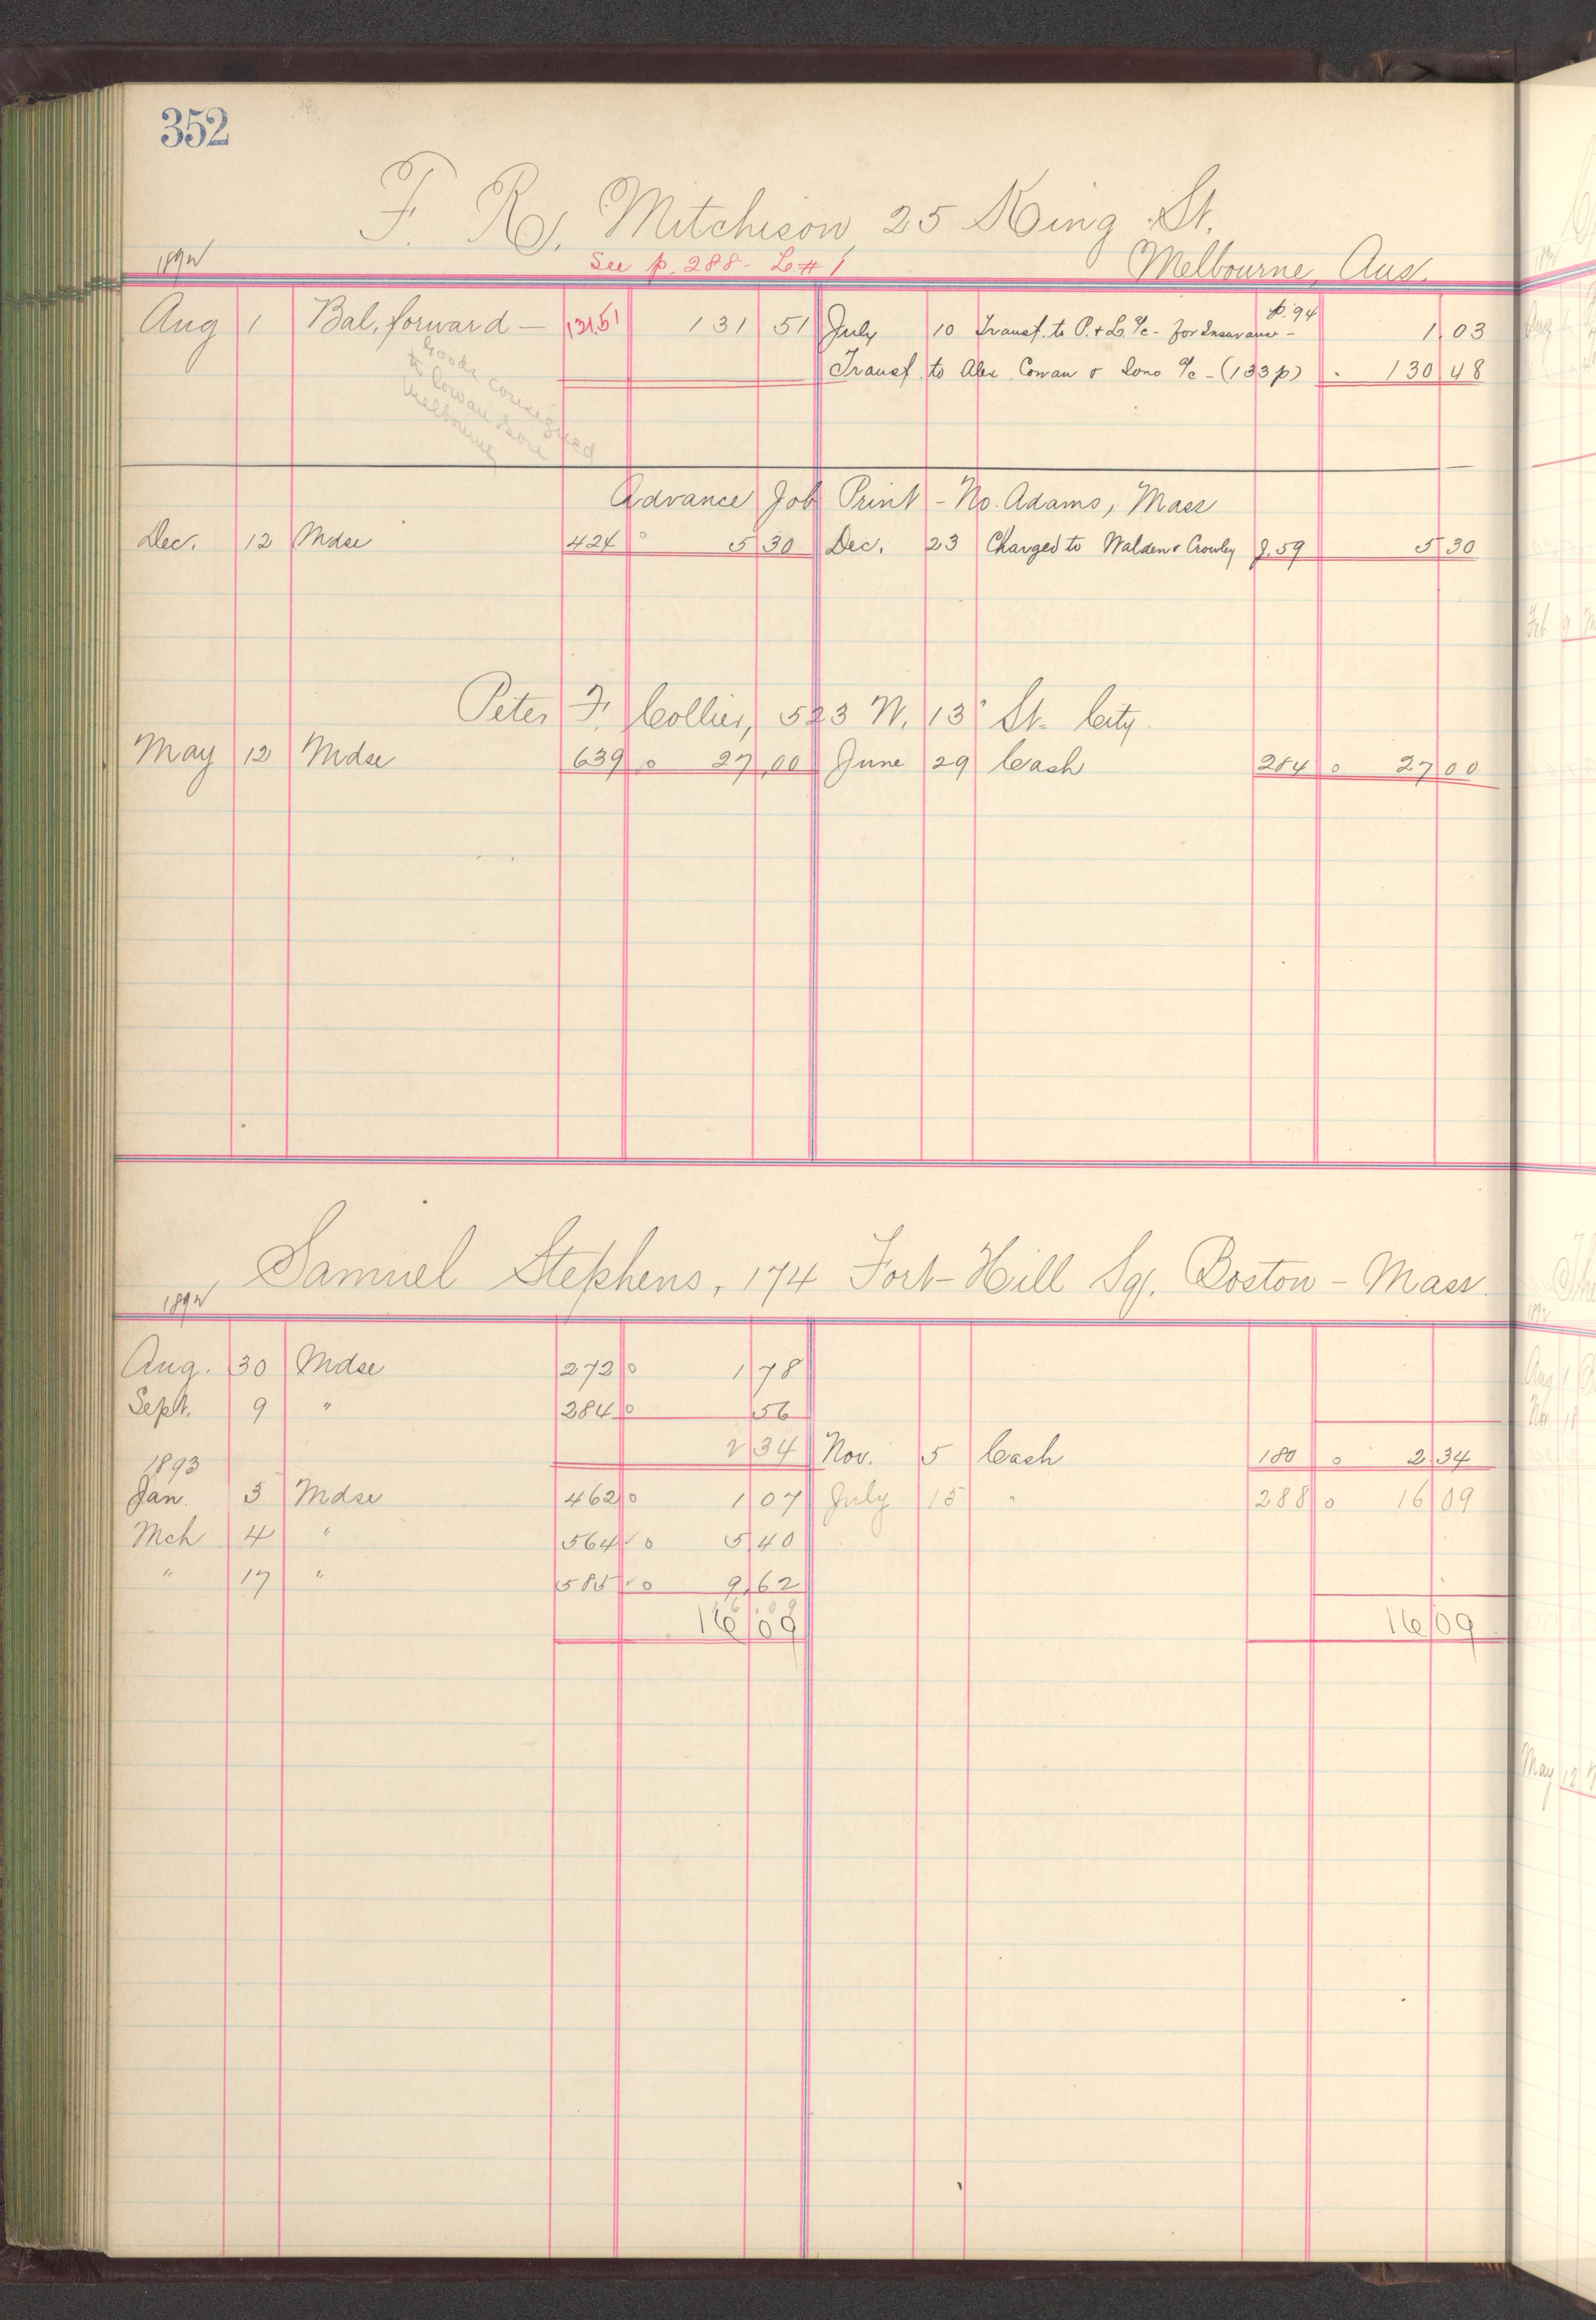 352
F. R. Mitchison 25 King St.
1892 See p. 288 - L # 1 Melbourne, Aus.
Aug 1 Bal. forward — 131.51 131 51 July 10 Transf. to P. & L. a/c - for Insurance - p. 94 1.03
Transf. to Alex. Cowan & Sons a/c - (133 p) . 130 48
Goods consigned
to Cowan & Son
Melbourne
Advance Job Print - No. Adams, Mass
Dec. 12 Mdse 424 0 5 30 Dec. 23 Charged to Walden & Crowley J. 59 5 30
Peter F. Collier, 523 N. 13 St. City.
May 12 Mdse 639 0 27 00 June 29 Cash 284 0 27 00
Samuel Stephens, 174 Fort-Hill Sq. Boston - Mass.
1892
Aug. 30 Mdse 272 0 1 78
Sept. 9 " 284 0 56
2 34 Nov. 5 Cash 180 0 2 34
1893
Jan. 3 Mdse 462 0 1 07 July 15 " 288 0 16 09
Mch 4 " 564 0 5 40
" 17 " 585 0 9 62
16/09 16/09